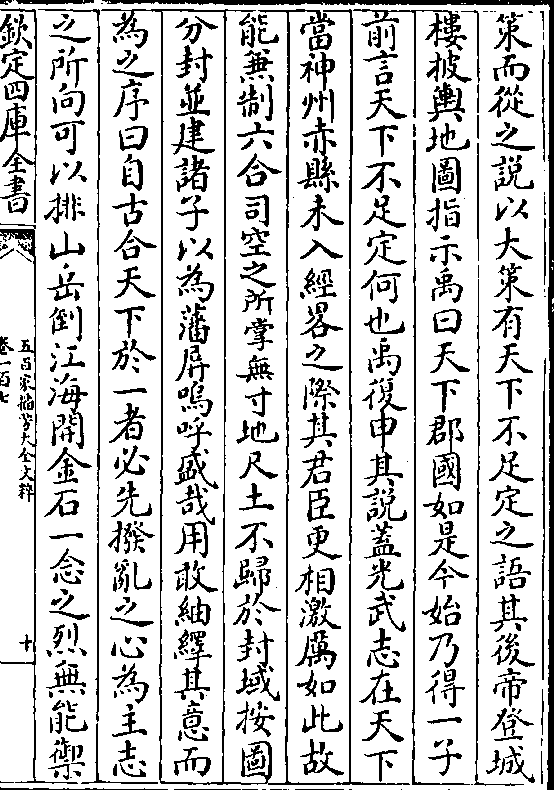 策而從之說以大策有天下不足定之語其後帝登城
樓披輿地圖指示禹曰天下郡國如是今始乃得一子
前言天下不足定何也禹復申其說蓋光武志在天下
當神州赤縣未入經畧之際其君臣更相激厲如此故
能兼制六合司空之所掌無寸地尺土不歸於封域按圖
分封並建諸子以為藩屏嗚呼盛哉用敢紬繹其意而
為之序曰自古合天下於一者必先撥亂之心為主志
之所向可以排山岳倒江海開金石一念之烈無能禦
欽定四庫全書
五百家播芳大全文粹
卷一百七
十